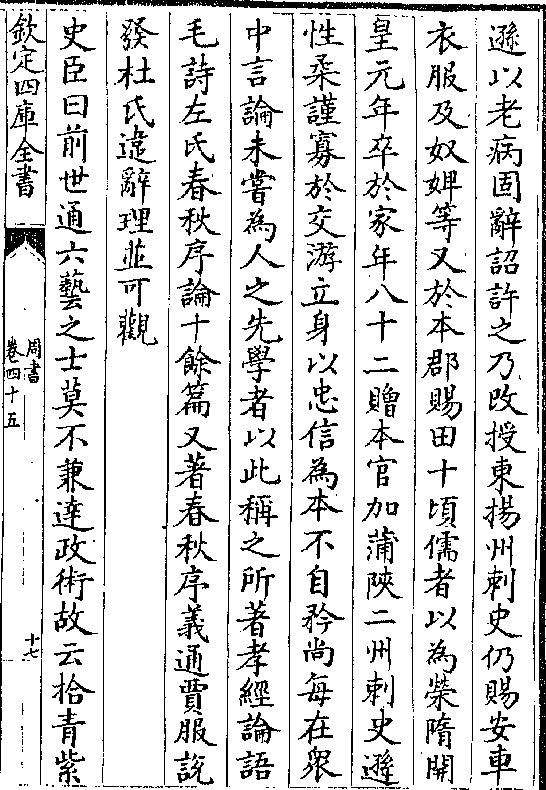 遜以老病固辭詔許之乃改授東揚州刺史仍賜安車
衣服及奴婢等又於本郡賜田十頃儒者以為榮隋開
皇元年卒於家年八十二贈本官加蒲陜二州刺史遜
性柔謹寡於交游立身以忠信為本不自矜尚每在衆
中言論未嘗為人之先學者以此稱之所著孝經論語
毛詩左氏春秋序論十餘篇又著春秋序義通賈服說
發杜氏違辭理並可觀
史臣曰前世通六藝之士莫不兼達政術故云拾青紫
欽定四庫全書
周書
卷四十五
十七